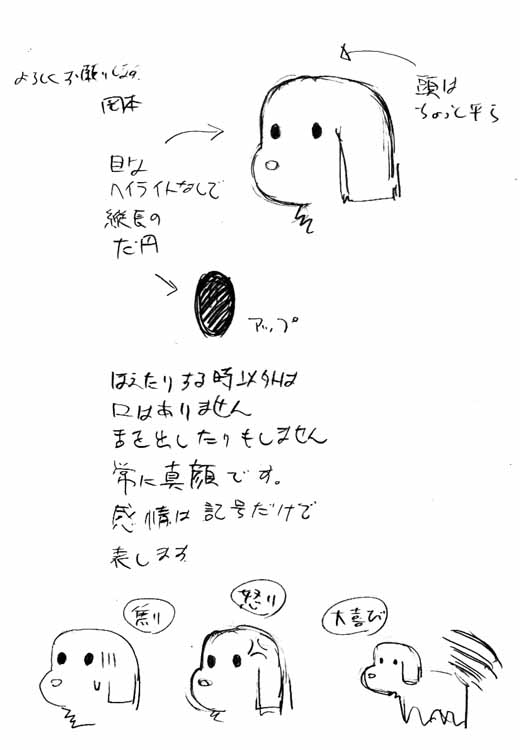 よろしくお願いします。
岡本
頭は
ちょっと平ら
目は
ハイライトなしで
縦長の
だ円
アップ
ほえたりする時以外は
口はありません
舌を出したりもしません
常に真顔です。
感情は記号だけで
表します
焦り
怒り
大喜び